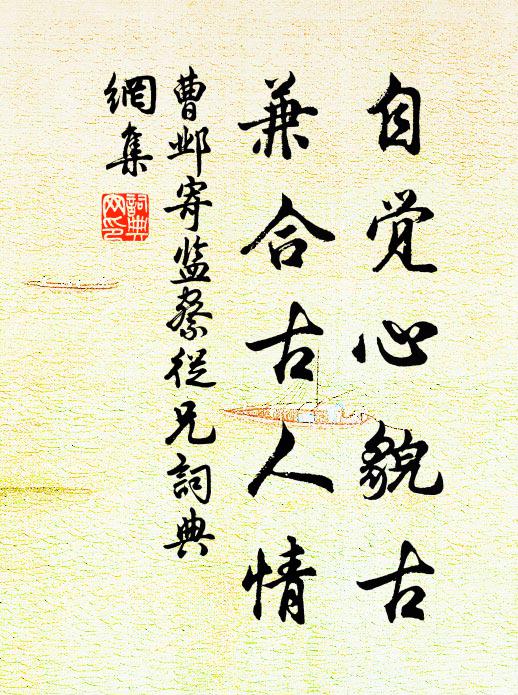 自觉心貌古
兼合古人情
曹邺寄监察從兄詞典
網集
詞典
网印